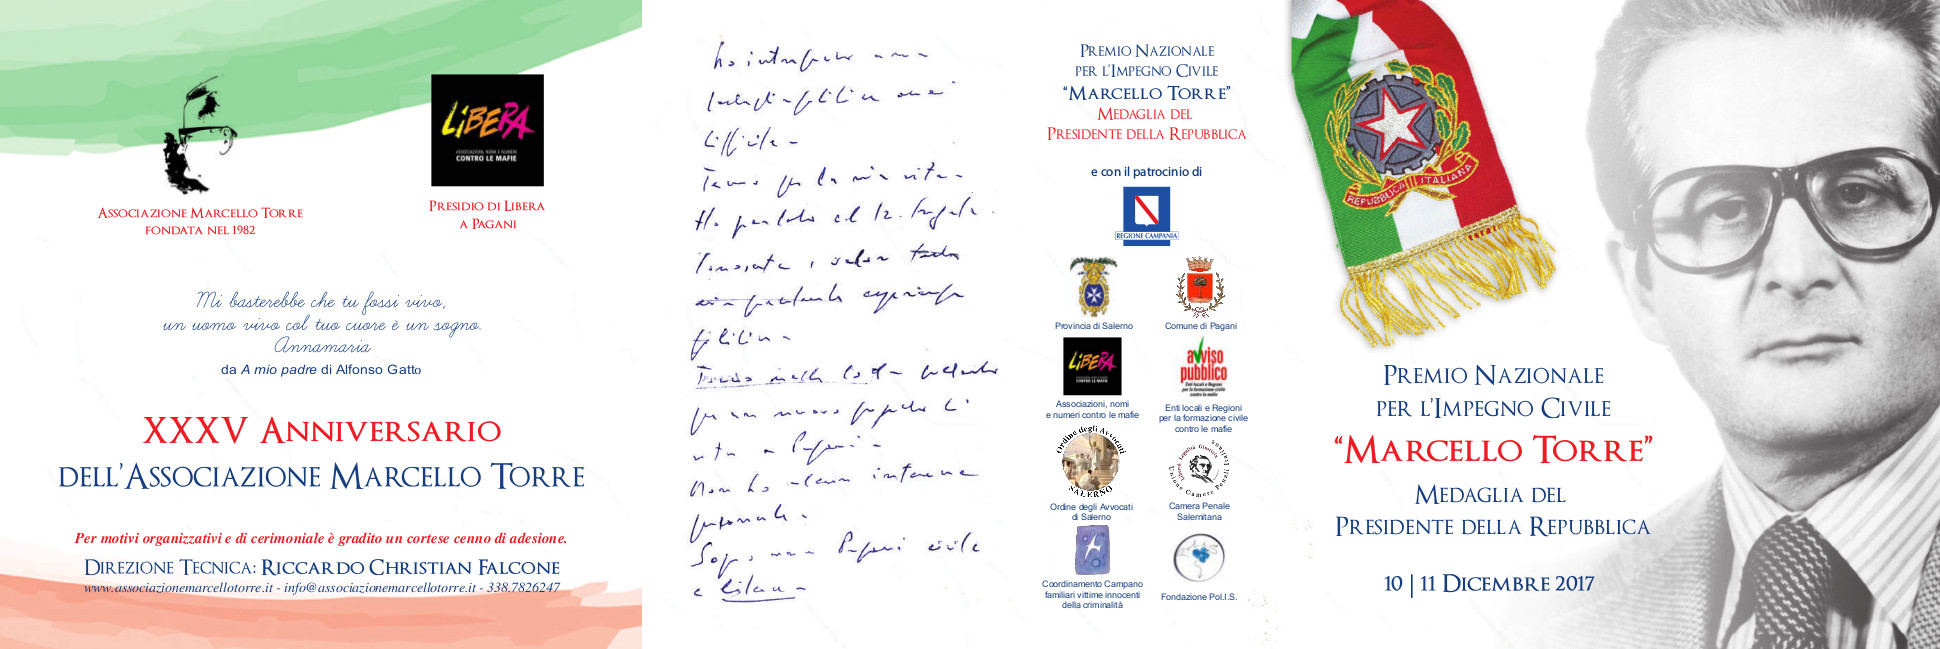 Associazione Marcello Torre
fondata nel 1982
LiBERA
ASSOCIAZIONI, NOMI E NUMERI
CONTRO LE MAFIE
Presidio di Libera
a Pagani
Mi basterebbe che tu fossi vivo,
un uomo vivo col tuo cuore è un sogno.
Annamaria
da A mio padre di Alfonso Gatto
XXXV Anniversario
dell'Associazione Marcello Torre
Per motivi organizzativi e di cerimoniale è gradito un cortese cenno di adesione.
Direzione Tecnica: Riccardo Christian Falcone
www.associazionemarcellotorre.it - info@associazionemarcellotorre.it - 338.7826247
ho intrapreso una
politica
difficile -
Temo per la mia vita -
Ho parlato al
civile
Torno nella lotta soltanto
per un nuovo progetto di
vita a Pagani -
Non ho alcun interesse
personale -
Sogno una Pagani civile
e libera -
Premio Nazionale
per l'Impegno Civile
“Marcello Torre”
Medaglia del
Presidente della Repubblica
e con il patrocinio di
REGIONE CAMPANIA
Provincia di Salerno
Comune di Pagani
LiBERA
CONTRO LE MAFIE
avviso
pubblico
Enti locali e Regioni
per la formazione civile
contro le mafie
Associazioni, nomi
e numeri contro le mafie
Enti locali e Regioni
per la formazione civile
contro le mafie
Ordine degli Avvocati
SALERNO
Unione Camere Penali Italiane
Ordine degli Avvocati
di Salerno
Camera Penale
Salernitana
Coordinamento Campano
familiari vittime innocenti
della criminalità
Fondazione Pol.I.S.
REPUBBLICA ITALIANA
Premio Nazionale
per l'Impegno Civile
“Marcello Torre”
Medaglia del
Presidente della Repubblica
10 | 11 Dicembre 2017